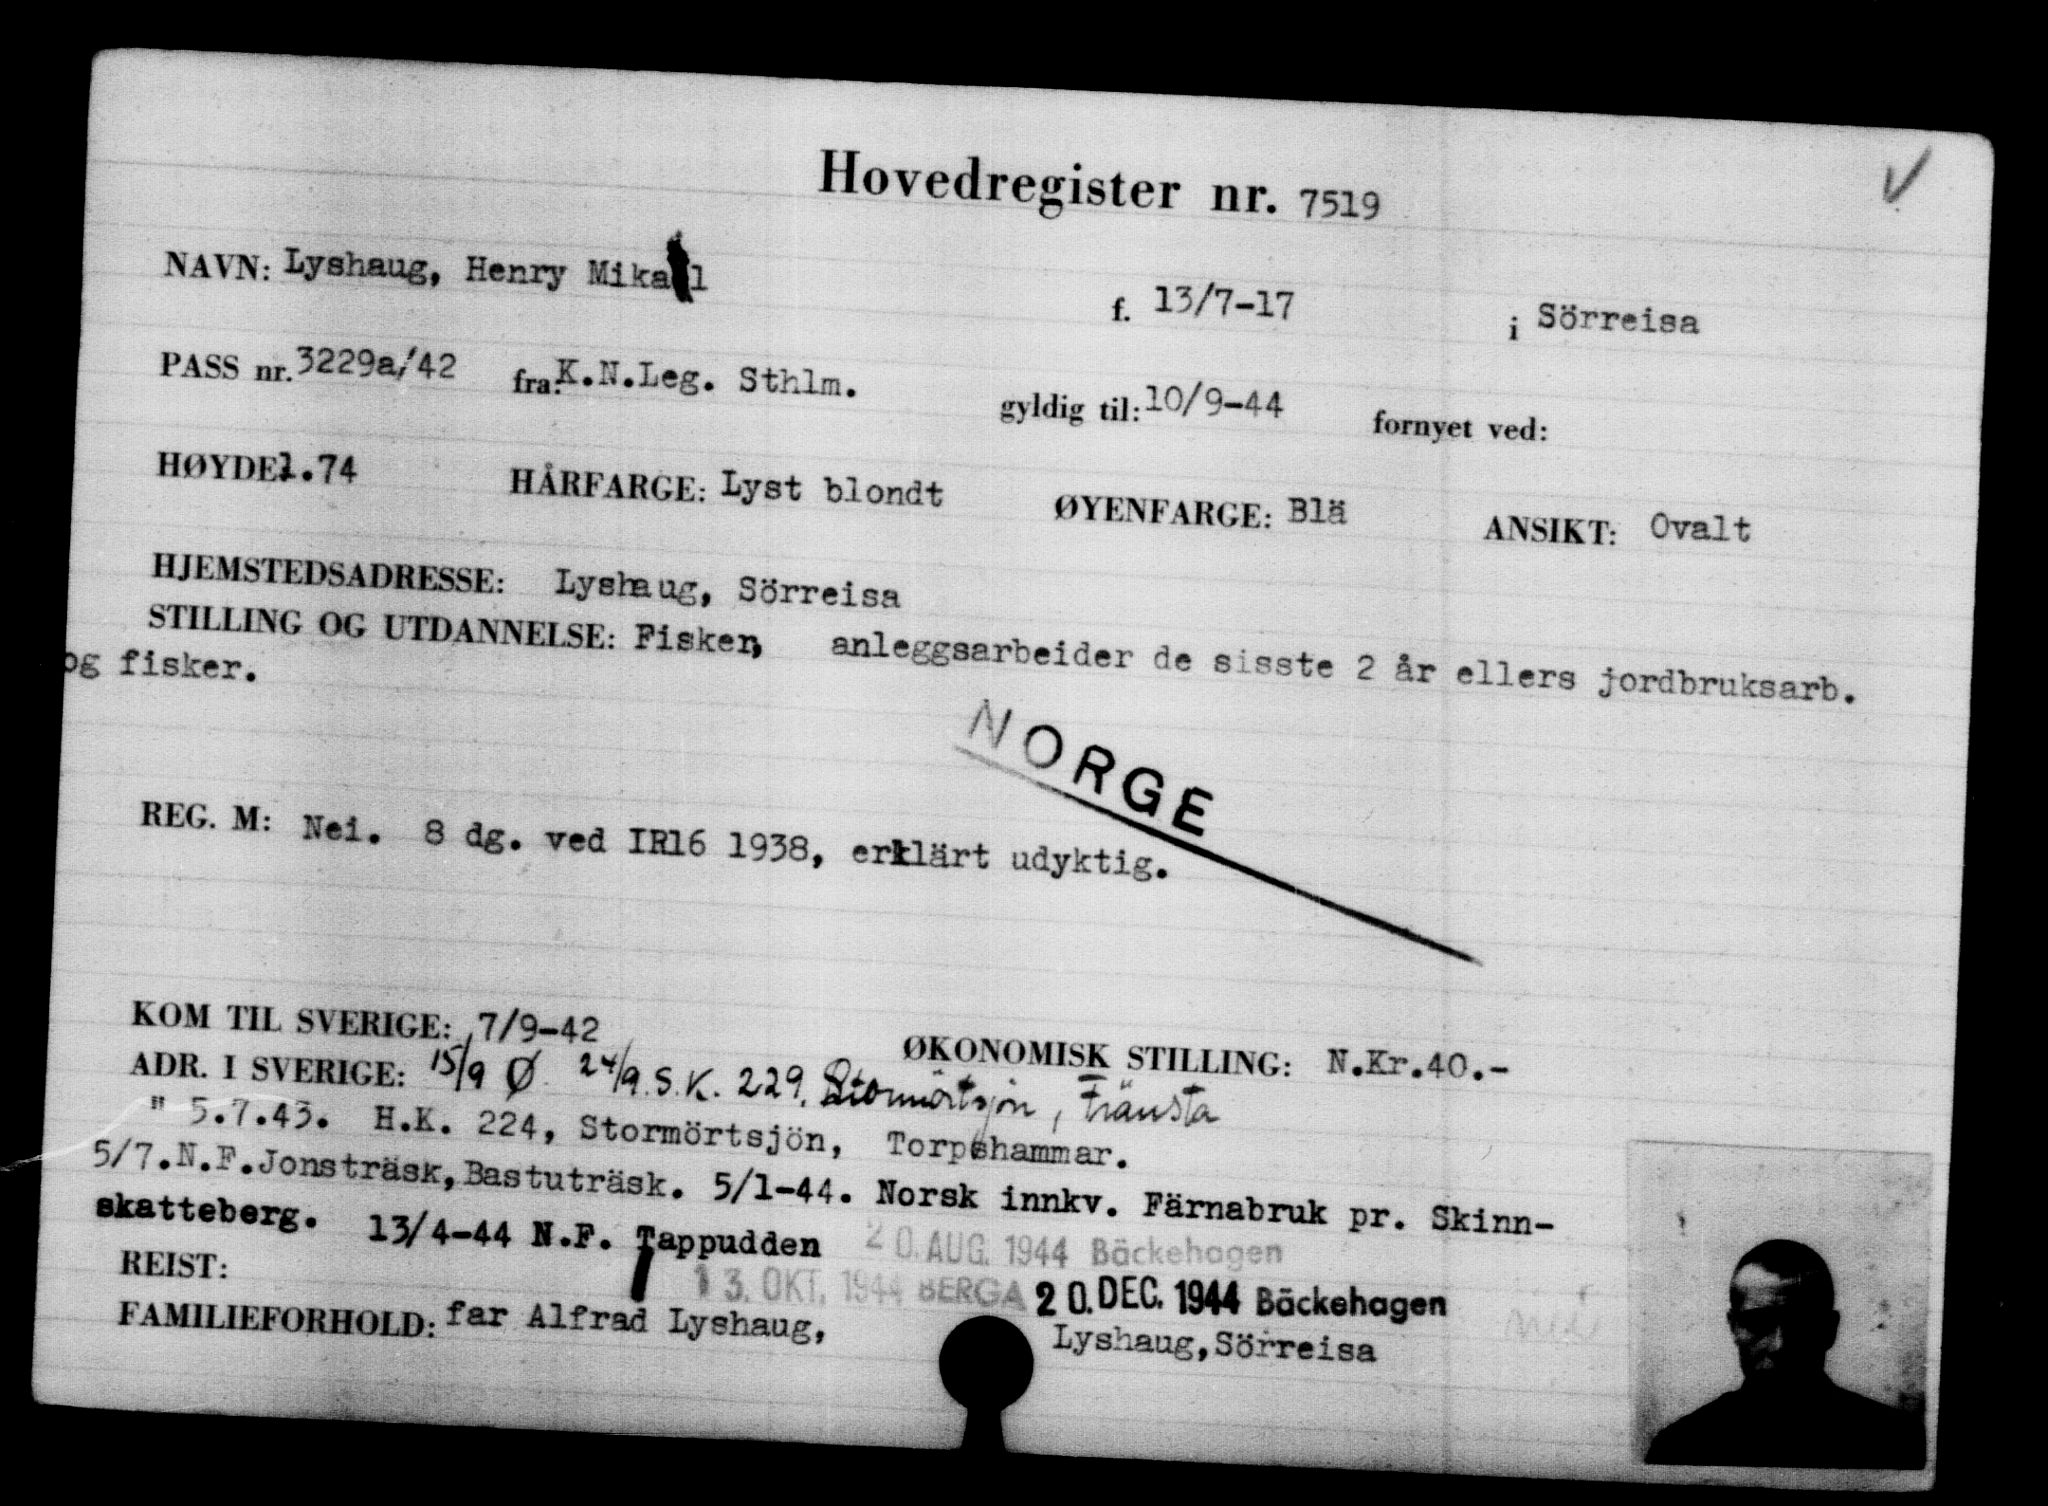 Hovedregister nr. 7519
NAVN: Lyshaug, Henry Mikal f. 13/7-17 i Sörreisa
PASS nr. 3229a/42 fra: K.N.Leg. Sthlm. gyldig til: 10/9-44 fornyet ved:
HØYDE: 1.74 HÅRFARGE: Lyst blondt ØYENFARGE: Blä ANSIKT: Ovalt
HJEMSTEDSADRESSE: Lyshaug, Sörreisa
STILLING OG UTDANNELSE: Fisker, anleggsarbeider de sisste 2 år ellers jordbruksarb.
og fisker.
NORGE
REG. M: Nei. 8 dg. ved IR16 1938, erklärt udyktig.
KOM TIL SVERIGE: 7/9-42 ØKONOMISK STILLING: N.Kr.40.-
ADR. I SVERIGE: 15/9 Ø. 24/9. S.K. 229, Stormörtsjön, Fränsta
" 5.7.43. H.K. 224, Stormörtsjön, Torpshammar.
5/7.N.F.Jonsträsk, Bastuträsk. 5/1-44. Norsk innkv. Färnabruk pr. Skinn-
skatteberg. 13/4-44 N.F. Tappudden 20. AUG. 1944 Bäckehagen
REIST: 13. OKT. 1944 BERGA 20. DEC. 1944 Bäckehagen
FAMILIEFORHOLD: far Alfrad Lyshaug, Lyshaug, Sörreisa